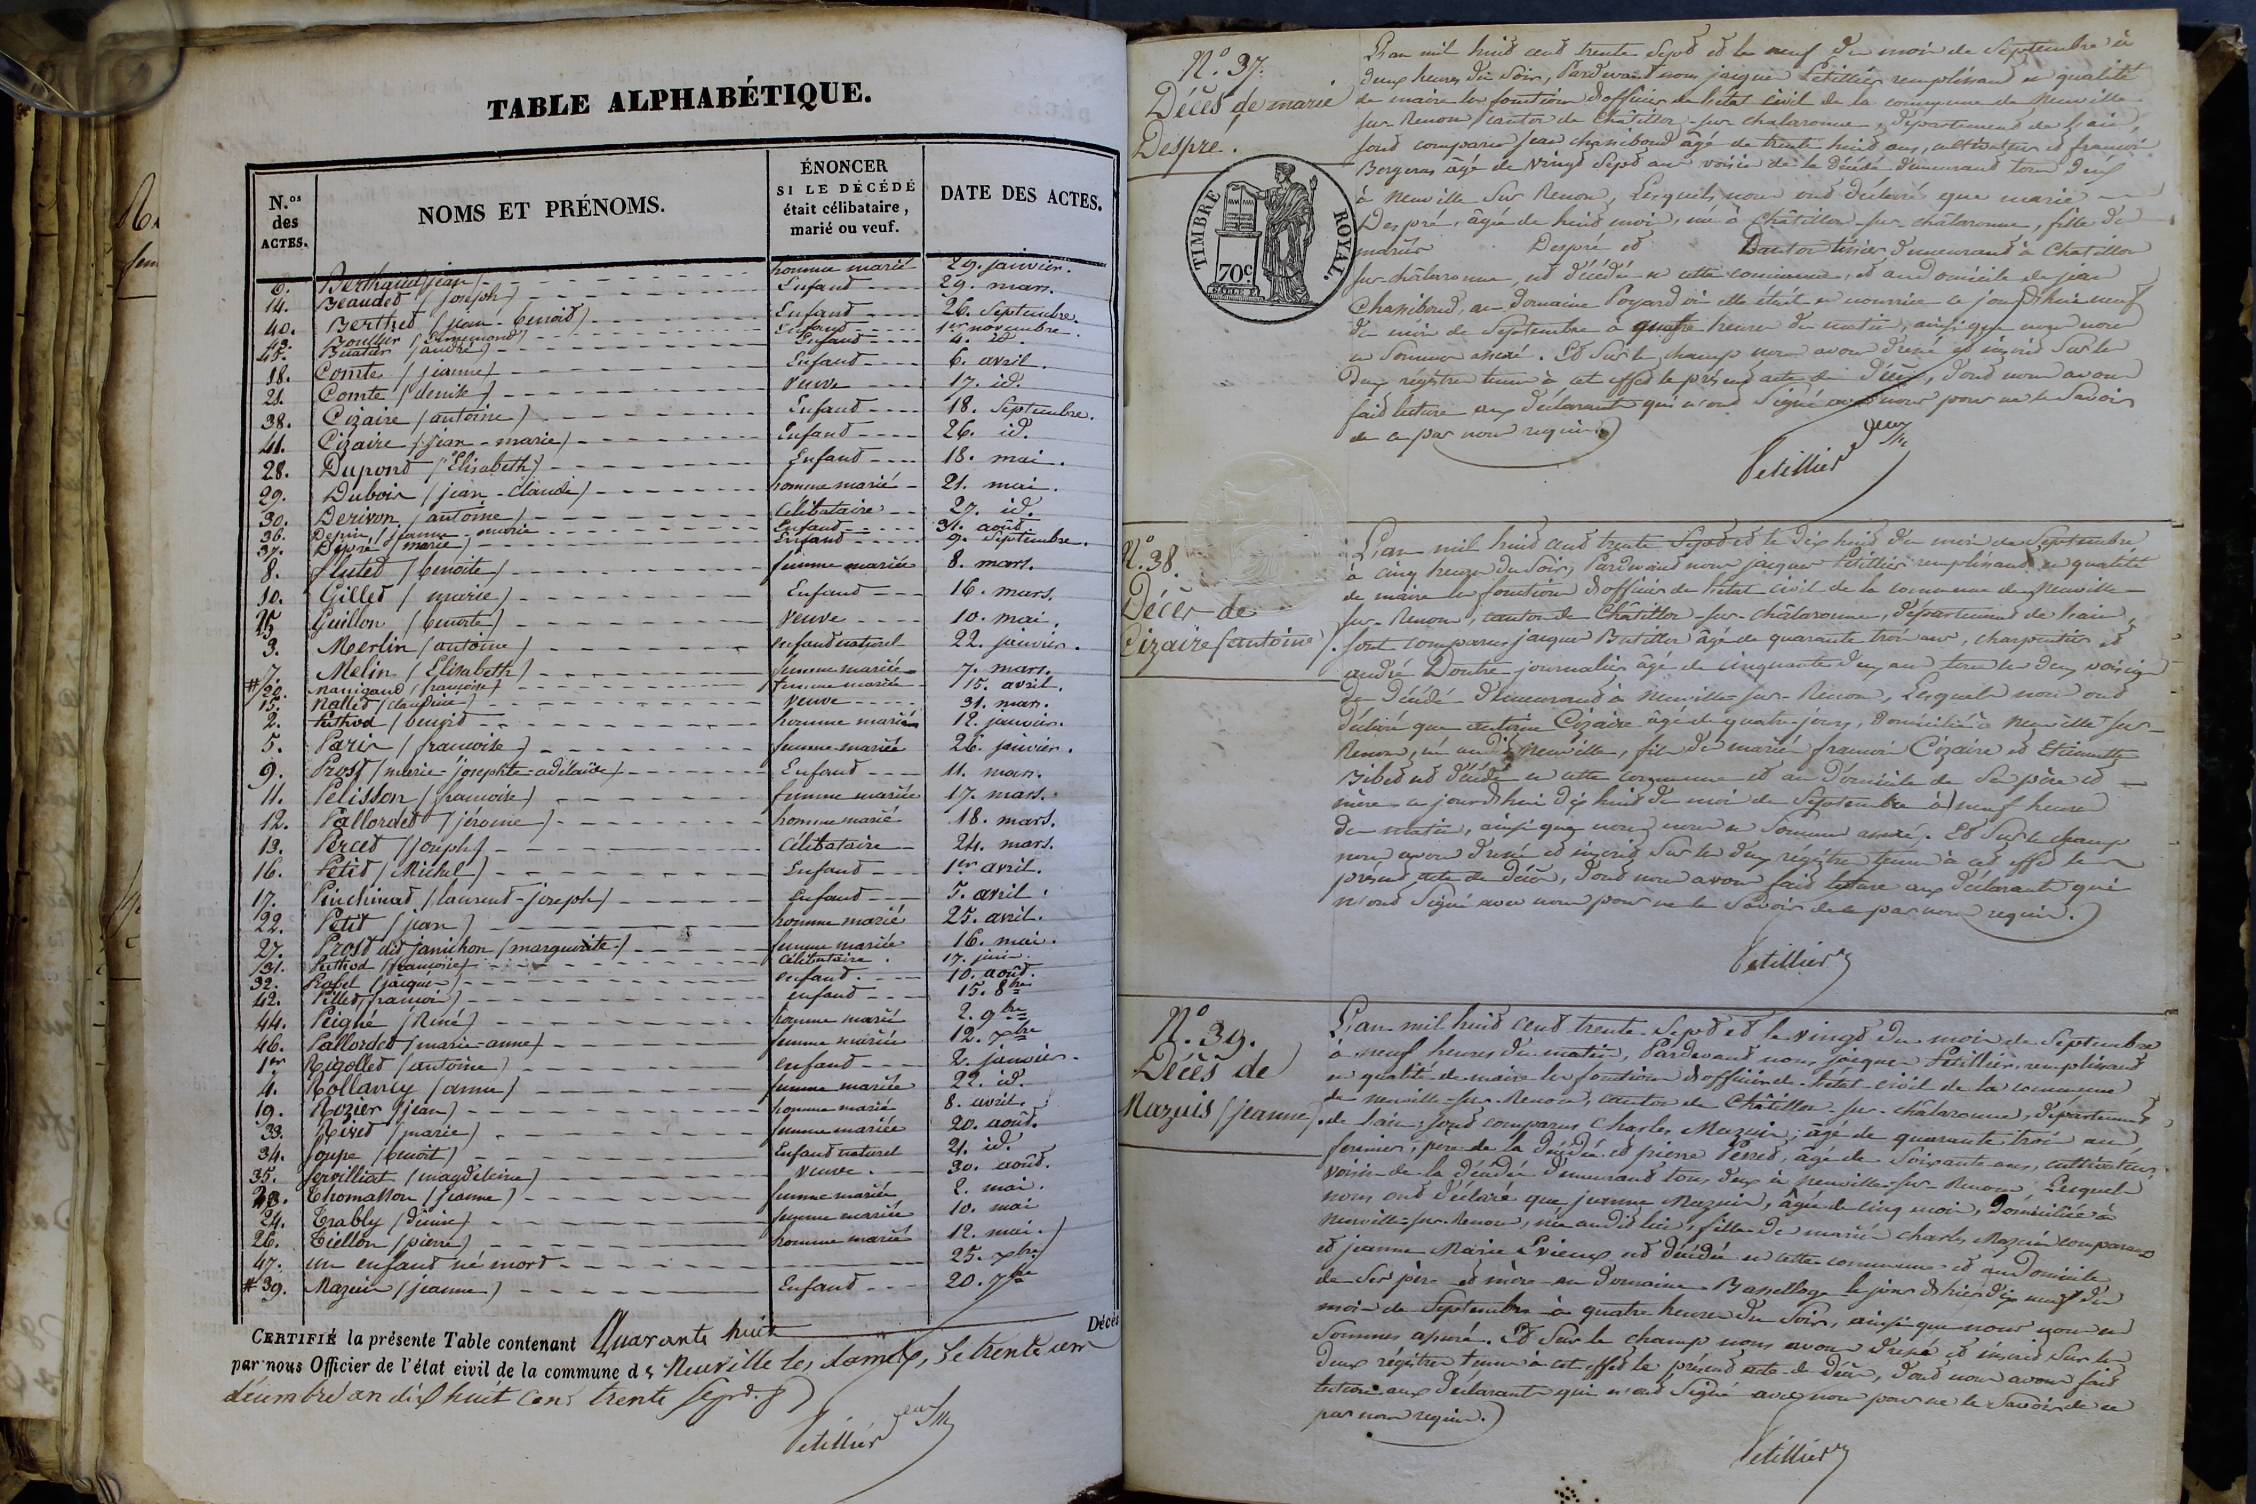 TABLE ALPHABÉTIQUE.
N.os des ACTES.
NOMS ET PRÉNOMS.
ÉNONCER SI LE DÉCÉDÉ était célibataire, marié ou veuf.
DATE DES ACTES.
6. Berthaud (jean) homme marié 29. janvier.
14. Beauded (joseph) Enfand 29. mars.
40. Berthed (jean-benoid) Enfand 26. Septembre.
43. Boullier Enfand 1er novembre.
45. Buatier (andré) Enfand 4. id.
18. Comte (jeanne) Enfand 6. avril.
21. Comte (denise) Veuve 17. id.
38. Cizaire (antoine) Enfand 18. Septembre.
41. Cizaire (jean-marie) Enfand 26. id.
28. Dupond (Elisabeth) Enfand 18. mai.
29. Dubois (jean-Claude) homme marié 21. mai.
30. Derivon (antoine) Célibataire 27. id.
36. Depin (jeanne-marie) Enfand 31. août.
37. Dépré (marie) Enfand 9. Septembre.
8. fluted (benoite) femme mariée 8. mars.
10. Gilled (marie) Enfand 16. mars.
25. Guillon (benoite) Veuve 10. mai.
3. Merlin (antoine) enfand naturel 22. janvier.
7. Melin (Elisabeth) femme mariée 7. mars.
# 20. Manigand (françoise) femme mariée 15. avril.
15. Nalled (claudine) Veuve 31. mars.
2. Puthod (benoid) homme marié 12. janvier.
5. Paris (françoise) femme mariée 26. janvier.
9. Prost (marie-josephte-adélaïde) Enfand 11. mars.
11. Pelisson (françoise) femme mariée 17. mars.
12. Pallorded (jérome) homme marié 18. mars.
13. Perced (joseph) Célibataire 24. mars.
16. Petid (Michel) Enfand 1er avril.
17. Pinchinad (laurend-joseph) Enfand 5. avril.
22. Petit (jean) homme marié 25. avril.
27. Prost did janichon (marguerite) femme mariée 16. mai.
31. Puthod (françoise) Célibataire. 17. juin.
32. Probel (jacques) enfand. 10. août.
42. Pilled (françois) enfand 15. 8bre
44. Peigné (René) homme marié 2. 9bre
46. Pallorded (marie-anne) femme mariée 12. xbre
1er Rigolled (antoine) enfand 2. janvier.
4. Rollancy (anne) femme mariée 22. id.
19. Rozier (jean) homme marié 8. avril.
33. Rived (marie) femme mariée 20. août.
34. Soupe (benoit) Enfand naturel 21. id.
35. Servilliat (magdeleine) Veuve. 30. août.
23. Thomasson (jeanne) femme mariée 2. mai.
24. Trably (Denise) femme mariée 10. mai
26. Tiellon (pierre) homme marié 12. mai.
47. un enfand né mord 25. xbre
# 39. Mazuir (jeanne) Enfand 20. 7bre
Décès
CERTIFIÉ la présente Table contenant Quarante huit
par nous Officier de l'état civil de la commune de Neuville les dames, le trente un
décembre an dix huit cend trente sept.
Petillier
N.o 37.
Décès de marie
Despré.
TIMBRE ROYAL.
70c
L'an mil huid cend trente Sept et le neuf du mois de Septembre à
deux heures du Soir, Pardevand nous jacques Petillier remplissand en qualité
de maire les fonctions d'officier de l'état civil de la commune de Neuville
sur-Renon, canton de Châtillon-sur-chalaronne, département de l'ain,
sond comparus jean chanibond âgé de trente huid ans, cultivateur et françois
Bergeron âgé de vingt Sept ans voisin de la Décédée demeurand tous deux
à Neuville sur Renon, Lesquels nous ond déclaré que marie
Despré, âgée de huid mois, née à Châtillon-sur-châlaronne, fille de
mariés Despré et tisser demeurand à Chatillon
sur-châlaronne, est décédée en cette commune, et au Domicile de jean
Chanibond, au Domaine Poyard où elle était en nourrice ce jourd'hui neuf
du mois de Septembre à quatre heures du matin, ainsi que nous nous
en Sommes assuré. Et Sur le champ nous avons dressé et inscrid Sur les
deux régistres tenus à cet effed le présend acte de décès, dond nous avons
faid lecture aux déclarants qui n'ond Signé avec nous pour ne le Savoir
de ce par nous requis.
Petillier
N.o 38.
Décès de
Cizaire (antoine).
L'an mil huid cend trente Sept et le dix huid du mois de Septembre
à cinq heures du Soir, Pardevand nous jacques Petillier remplissand en qualité
de maire les fonctions d'officier de l'état civil de la commune de Neuville
sur-Renon, canton de Châtillon-sur-châlaronne, département de l'ain,
sont comparus jacques Butillon âgé de quarante trois ans, charpentier et
andré Doutre journalier âgé de cinquante deux ans tous les deux voisins
du Décédé demeurand à Neuville-sur-Renon, Lesquels nous ond
déclaré que antoine Cizaire âgé de quatre jours, domicilié à Neuville-sur-
Renon, né audit Neuville, fils de mariés françois Cizaire et Etiennette
Bibed est décédé en cette commune et au Domicile de Ses père et
mère ce jourd'hui dix huid du mois de Septembre à neuf heures
du matin, ainsi que nous nous en Sommes assuré. Et Sur le champ
nous avons dressé et inscrid Sur les deux régistres tenus à cet effed le
présend acte de décès, dond nous avons faid lecture aux déclarants qui
n'ond Signé avec nous pour ne le Savoir de ce par nous requis.
Petillier
N.o 39.
Décès de
Mazuis (jeanne).
L'an mil huid cend trente-Sept et le vingt du mois de Septembre
à neuf heures du matin, Pardevand nous jacques Petillier, remplissand
en qualité de maire les fonctions d'officier de l'état civil de la commune
de neuville-sur-Renon, canton de Châtillon-sur-châlaronne, département
de l'ain, sond comparus Charles Mazuir, âgé de quarante-trois ans,
fermier, père de la décédée et pierre Perred, âgé de Soixante ans, cultivateur
voisin de la décédée demeurand tous deux à neuville-sur-Renon, Lesquels
nous ond déclaré que jeanne Mazuir, âgée de cinq mois, domiciliée à
Neuville-sur-Renon, née audit lieu, fille de mariés charles Mazuir comparand
et jeanne Marie Evieux est décédée en cette commune et au Domicile
de Ses père et mère au Domaine le jour d'hier dix neuf du
mois de Septembre à quatre heures du Soir, ainsi que nous nous en
Sommes assuré. Et Sur le champ nous avons dressé et inscrid Sur les
deux régistres tenus à cet effed le présend acte de décès, dond nous avons faid
lecture aux déclarants qui n'ond Signé avec nous pour ne le Savoir de ce
par nous requis.
Petillier